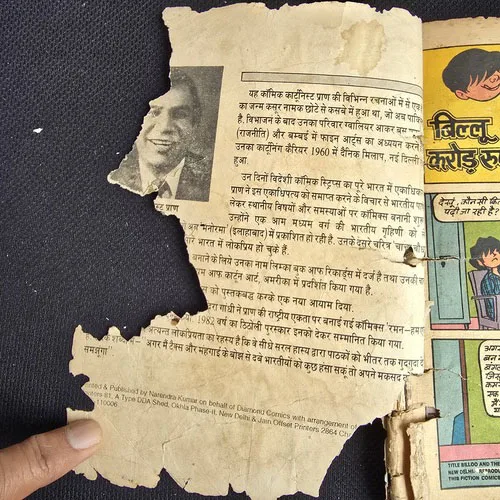 यह कॉमिक कार्टूनिस्ट प्राण की विभिन्न रचनाओं में से एक
का जन्म कसूर नामक छोटे से कसबे में हुआ था, जो अब पाकि
है. विभाजन के बाद उनका परिवार ग्वालियर आकर बस
(राजनीति) और बम्बई में फाइन आर्ट्स का अध्ययन करने
उनका कार्टूनिंग कैरियर 1960 में दैनिक मिलाप, नई दिल्ली
हुआ.
उन दिनों विदेशी कॉमिक स्ट्रिप्स का पूरे भारत में एकाधिक
प्राण ने इस एकाधिपत्य को समाप्त करने के विचार से भारतीय
लेकर स्थानीय विषयों और समस्याओं पर कॉमिक्स बनानी शुरू
उन्होंने एक आम मध्यम वर्ग की भारतीय गृहिणी को
अब 'मनोरमा' (इलाहाबाद) में प्रकाशित हो रही है. उनके दूसरे चरित्र 'चाचा चौधरी
भारत में लोकप्रिय हो चुके हैं.
बनाने के लिये उनका नाम लिम्का बुक आफ रिकार्डस में दर्ज है तथा उनकी
आफ कार्टून आर्ट, अमरीका में प्रदर्शित किया गया है.
को पुस्तकबद्ध करके एक नया आयाम दिया.
गांधी ने प्राण की राष्ट्रीय एकता पर बनाई गई कॉमिक्स 'रमन-हम
1982 वर्ष का ठिठोली पुरस्कार इनको देकर सम्मानित किया गया.
अत्यन्त लोकप्रियता का रहस्य है कि वे सीधे सरल हास्य द्वारा पाठकों को भीतर तक गुदगुदा
अगर मैं टैक्स और महंगाई के बोझ से दबे भारतीयों को कुछ हंसा सकूं तो अपने मकसद
समझूंगा'
स्ट प्राण
nted & Published by Narendra Kumar on behalf of Diamond Comics with arrangement of
ters 81, A Type DDA Shed, Okhla Phase-II, New Delhi & Jain Offset Printers 2864
110006
बिल्लू
करोड़ रु
देखूं, कौन सी फिल्म
TITLE BILLOO AND THE
NEW DELHI. REPRODU
THIS FICTION COMIC